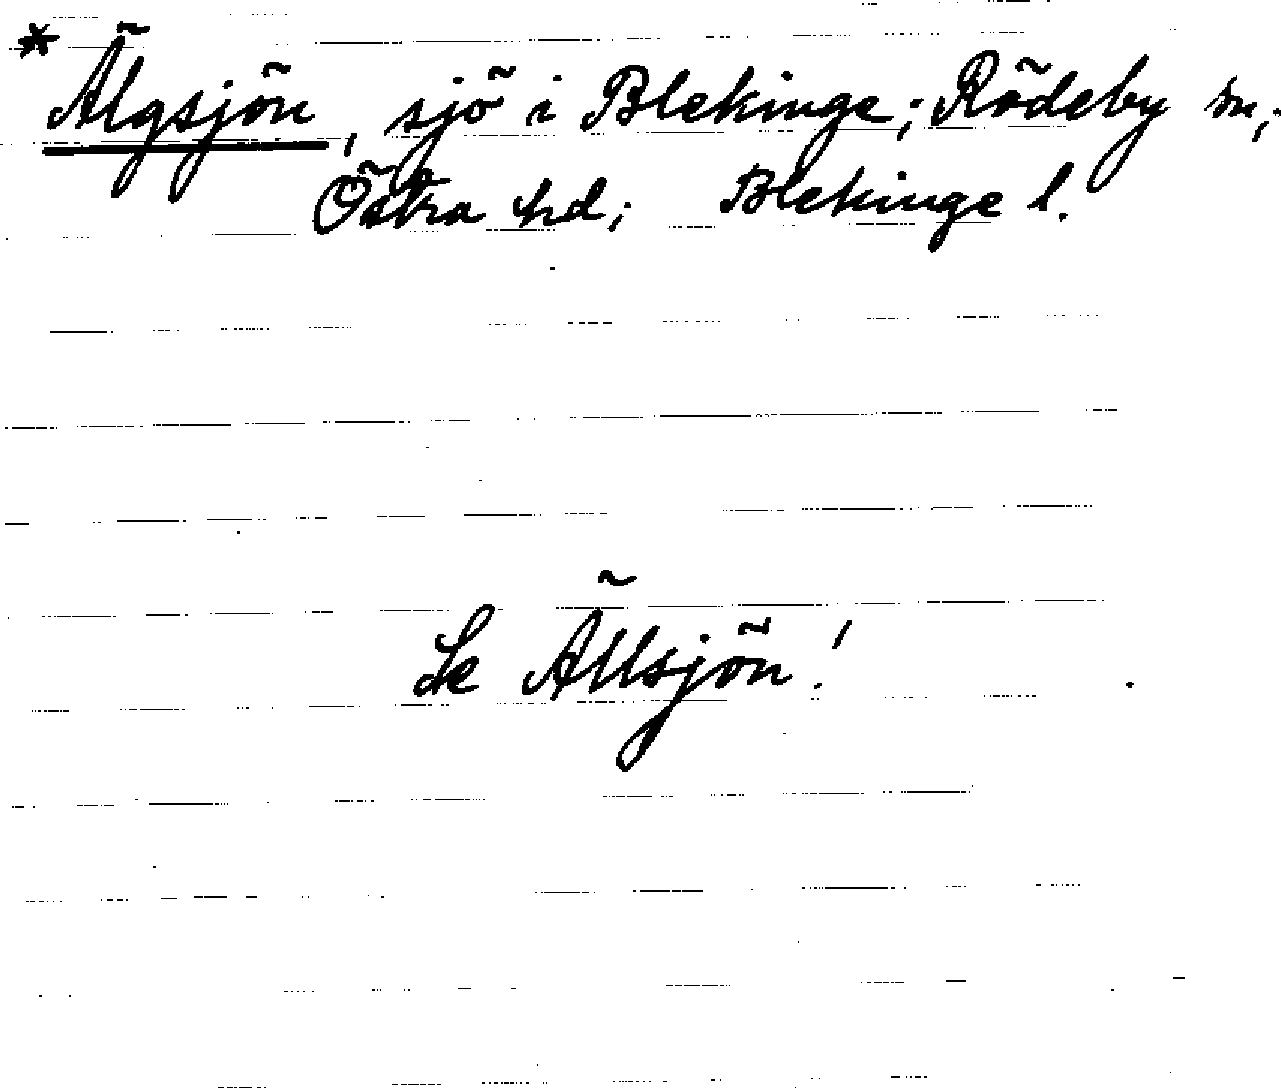 * Älgsjön, sjö i Blekinge; Rödeby sn;
Östra hd; Blekinge l.
Se Ällsjön!